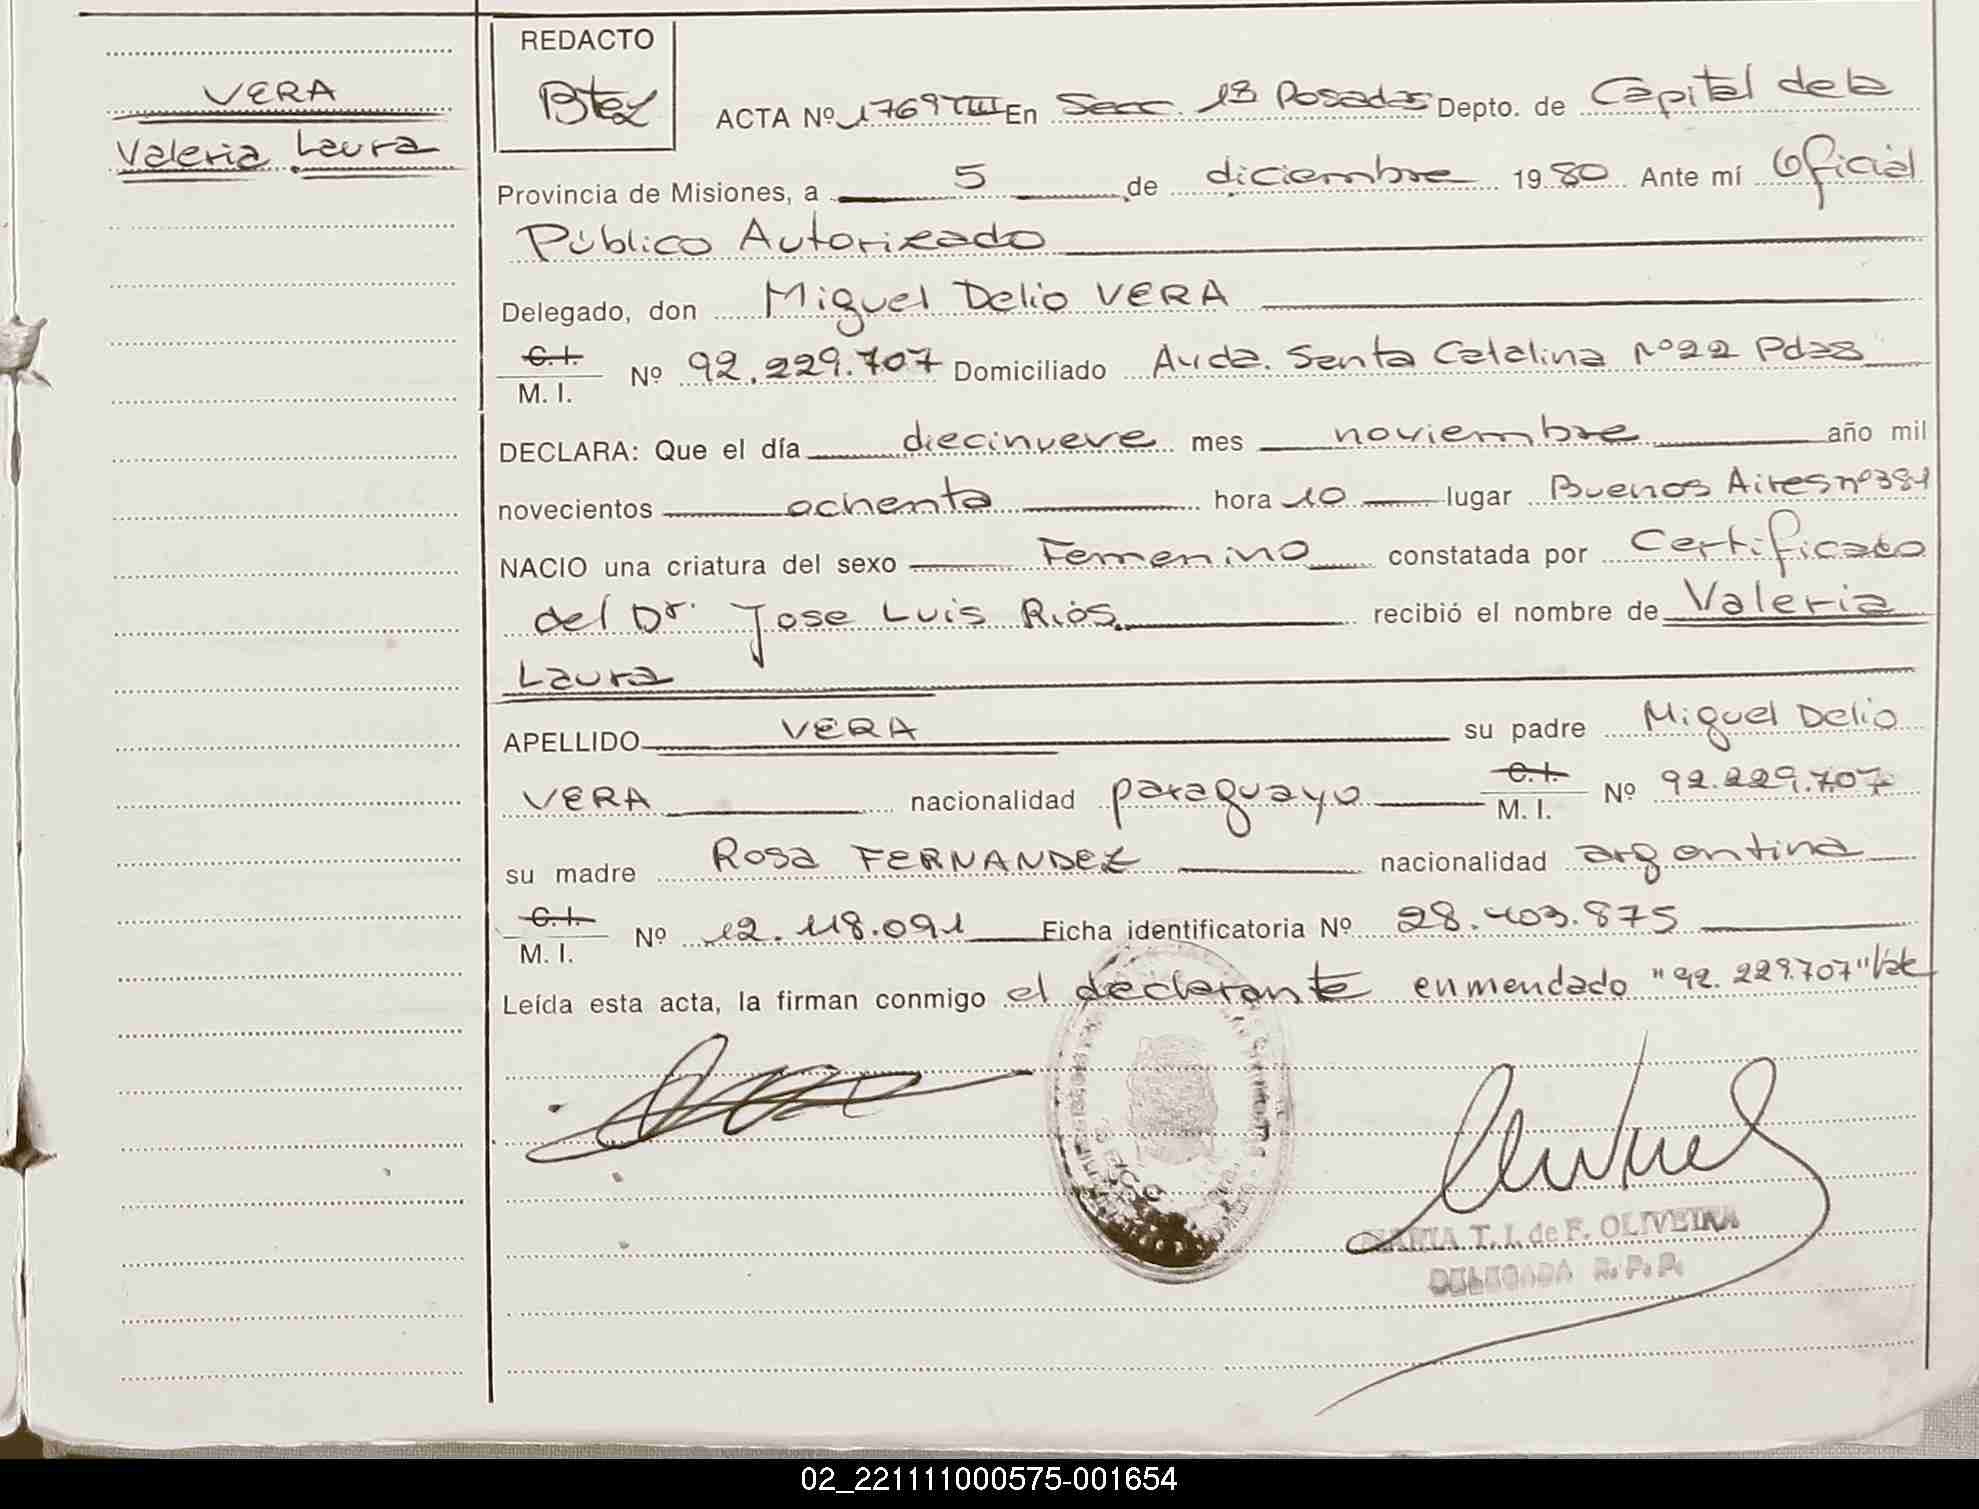 VERA
Valeria Laura
REDACTO
Btez
ACTA Nº 1769 TIII En Secc. 1a Posadas Depto. de Capital de la
Provincia de Misiones, a 5 de diciembre 1980 Ante mí Oficial
Público Autorizado
Delegado, don Miguel Delio VERA
C.I. M. I. Nº 92.229.707 Domiciliado Avda. Santa Catalina Nº 22 Pdas
DECLARA: Que el día diecinueve mes noviembre año mil
novecientos ochenta hora 10 lugar Buenos Aires nº 381
NACIO una criatura del sexo Femenino constatada por Certificado
del Dr. Jose Luis Rios recibió el nombre de Valeria
Laura
APELLIDO VERA su padre Miguel Delio
VERA nacionalidad paraguayo C.I. M. I. Nº 92.229.707
su madre Rosa FERNANDEZ nacionalidad argentina
C.I. M. I. Nº 12.118.091 Ficha identificatoria Nº 28.403.875
Leída esta acta, la firman conmigo el declarante enmendado "92.229.707" Vale
MARIA T. I. de F. OLIVEIRA
DELEGADA R. P. P.
02_221111000575-001654